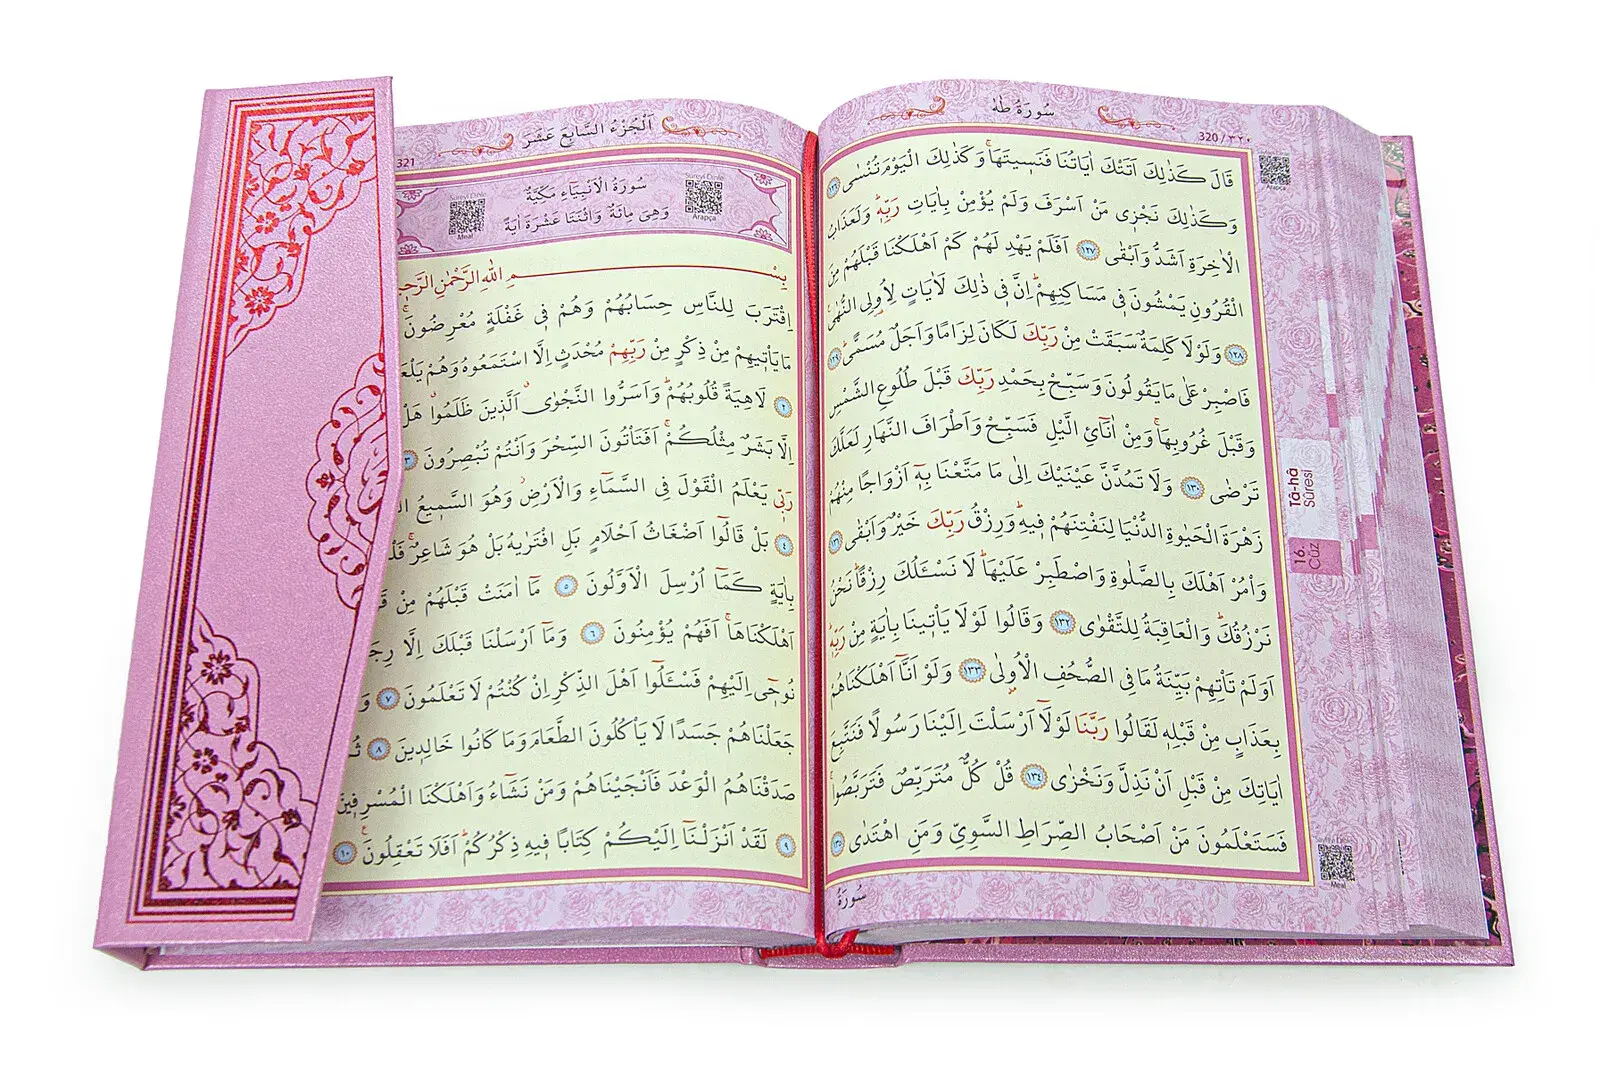 سُورَةُ طٰهٰ
320/٣٢٠
قَالَ كَذٰلِكَ اَتَتْكَ اٰيَاتُنَا فَنَسٖيتَهَاۚ وَكَذٰلِكَ الْيَوْمَ تُنْسٰى ﴿١٢٦﴾
وَكَذٰلِكَ نَجْزٖى مَنْ اَسْرَفَ وَلَمْ يُؤْمِنْ بِاٰيَاتِ رَبِّهٖؕ وَلَعَذَابُ
الْاٰخِرَةِ اَشَدُّ وَاَبْقٰى ﴿١٢٧﴾ اَفَلَمْ يَهْدِ لَهُمْ كَمْ اَهْلَكْنَا قَبْلَهُمْ مِنَ
الْقُرُونِ يَمْشُونَ فٖى مَسَاكِنِهِمْؕ اِنَّ فٖى ذٰلِكَ لَاٰيَاتٍ لِاُولِى النُّهٰى
﴿١٢٨﴾ وَلَوْلَا كَلِمَةٌ سَبَقَتْ مِنْ رَبِّكَ لَكَانَ لِزَامًا وَاَجَلٌ مُسَمًّىؕ ﴿١٢٩﴾
فَاصْبِرْ عَلٰى مَا يَقُولُونَ وَسَبِّحْ بِحَمْدِ رَبِّكَ قَبْلَ طُلُوعِ الشَّمْسِ
وَقَبْلَ غُرُوبِهَاۚ وَمِنْ اٰنَآئِ الَّيْلِ فَسَبِّحْ وَاَطْرَافَ النَّهَارِ لَعَلَّكَ
تَرْضٰى ﴿١٣٠﴾ وَلَا تَمُدَّنَّ عَيْنَيْكَ اِلٰى مَا مَتَّعْنَا بِهٖٓ اَزْوَاجًا مِنْهُمْ
زَهْرَةَ الْحَيٰوةِ الدُّنْيَا لِنَفْتِنَهُمْ فٖيهِؕ وَرِزْقُ رَبِّكَ خَيْرٌ وَاَبْقٰى ﴿١٣١﴾
وَأْمُرْ اَهْلَكَ بِالصَّلٰوةِ وَاصْطَبِرْ عَلَيْهَاؕ لَا نَسْـَٔلُكَ رِزْقًاؕ نَحْنُ
نَرْزُقُكَؕ وَالْعَاقِبَةُ لِلتَّقْوٰى ﴿١٣٢﴾ وَقَالُوا لَوْلَا يَأْتٖينَا بِاٰيَةٍ مِنْ رَبِّهٖؕ
اَوَلَمْ تَأْتِهِمْ بَيِّنَةُ مَا فِى الصُّحُفِ الْاُولٰى ﴿١٣٣﴾ وَلَوْ اَنَّٓا اَهْلَكْنَاهُمْ
بِعَذَابٍ مِنْ قَبْلِهٖ لَقَالُوا رَبَّنَا لَوْلَٓا اَرْسَلْتَ اِلَيْنَا رَسُولًا فَنَتَّبِعَ
اٰيَاتِكَ مِنْ قَبْلِ اَنْ نَذِلَّ وَنَخْزٰى ﴿١٣٤﴾ قُلْ كُلٌّ مُتَرَبِّصٌ فَتَرَبَّصُواۚ
فَسَتَعْلَمُونَ مَنْ اَصْحَابُ الصِّرَاطِ السَّوِىِّ وَمَنِ اهْتَدٰى ﴿١٣٥﴾
سُورَةُ
Arapça
Tâ-hâ
Sûresi
16.
Cüz
Meal
اَلْجُزْءُ السَّابِعَ عَشَرَ
321
سُورَةُ الْاَنْبِيَاءِ مَكِّيَّةٌ
وَهِىَ مِائَةٌ وَاثْنَتَا عَشْرَةَ اٰيَةً
Sureyi Dinle
Arapça
Sureyi Dinle
Meal
بِسْمِ اللّٰهِ الرَّحْمٰنِ الرَّحٖي
اِقْتَرَبَ لِلنَّاسِ حِسَابُهُمْ وَهُمْ فٖى غَفْلَةٍ مُعْرِضُونَۚ
مَا يَأْتٖيهِمْ مِنْ ذِكْرٍ مِنْ رَبِّهِمْ مُحْدَثٍ اِلَّا اسْتَمَعُوهُ وَهُمْ يَلْعَ
﴿٢﴾ لَاهِيَةً قُلُوبُهُمْؕ وَاَسَرُّوا النَّجْوٰىࣗ اَلَّذٖينَ ظَلَمُواࣗ هَلْ
اِلَّا بَشَرٌ مِثْلُكُمْۚ اَفَتَأْتُونَ السِّحْرَ وَاَنْتُمْ تُبْصِرُونَ ﴿٣﴾
رَبّٖى يَعْلَمُ الْقَوْلَ فِى السَّمَٓاءِ وَالْاَرْضِؗ وَهُوَ السَّمٖيعُ ال
﴿٤﴾ بَلْ قَالُٓوا اَضْغَاثُ اَحْلَامٍ بَلِ افْتَرٰيهُ بَلْ هُوَ شَاعِرٌۚ فَلْ
بِاٰيَةٍ كَمَٓا اُرْسِلَ الْاَوَّلُونَ ﴿٥﴾ مَٓا اٰمَنَتْ قَبْلَهُمْ مِنْ قَ
اَهْلَكْنَاهَاۚ اَفَهُمْ يُؤْمِنُونَ ﴿٦﴾ وَمَٓا اَرْسَلْنَا قَبْلَكَ اِلَّا رِجَ
نُوحٖٓى اِلَيْهِمْ فَسْـَٔلُٓوا اَهْلَ الذِّكْرِ اِنْ كُنْتُمْ لَا تَعْلَمُونَ ﴿٧﴾ وَ
جَعَلْنَاهُمْ جَسَدًا لَا يَأْكُلُونَ الطَّعَامَ وَمَا كَانُوا خَالِدٖينَ ﴿٨﴾ ثُ
صَدَقْنَاهُمُ الْوَعْدَ فَاَنْجَيْنَاهُمْ وَمَنْ نَشَٓاءُ وَاَهْلَكْنَا الْمُسْرِفٖينَ
﴿٩﴾ لَقَدْ اَنْزَلْنَٓا اِلَيْكُمْ كِتَابًا فٖيهِ ذِكْرُكُمْؕ اَفَلَا تَعْقِلُونَۚ ﴿١٠﴾